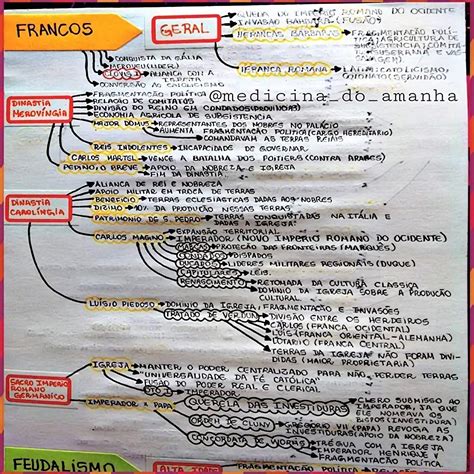 FRANCOS
GERAL
QUEDA DO IMPÉRIO ROMANO DO OCIDENTE
INVASÃO BÁRBARA (FUSÃO)
HERANÇAS BÁRBARAS
FRAGMENTAÇÃO POLÍ-
TICA, AGRICULTURA DE
SUBSISTÊNCIA, COMITA
(SUSERANIA E VAS-
SALAGEM)
HERANÇA ROMANA
LATIM, CATOLICISMO,
COLONATO (SERVIDÃO)
CONQUISTA DA GÁLIA
MEROVEU (LÍDER)
CLOVIS I
ALIANÇA COM A
IGREJA
CONVERSÃO AO CATOLICISMO
@medicina_do_amanha
DINASTIA
MEROVÍNGIA
FRAGMENTAÇÃO POLÍTICA
RELAÇÃO DE COMITATUS
DIVISÃO DO REINO EM CONDADOS (PROVÍNCIAS)
ECONOMIA AGRÍCOLA DE SUBSISTÊNCIA
MAJOR DOMUS
REPRESENTANTES DOS NOBRES NO PALÁCIO
AUMENTA FRAGMENTAÇÃO POLÍTICA (CARGO HEREDITÁRIO)
COMANDAVAM AS TERRAS REAIS
REIS INDOLENTES
INCAPACIDADE DE GOVERNAR
CARLOS MARTEL
VENCE A BATALHA DOS POITIERS (CONTRA ÁRABES)
PEPINO, O BREVE
APOIO DA NOBREZA E IGREJA
FIM DA DINASTIA
DINASTIA
CAROLÍNGIA
ALIANÇA DE REI E NOBREZA
APOIO MILITAR EM TROCA DE TERRAS
BENEFÍCIO
TERRAS ECLESIÁSTICAS DADAS AOS NOBRES
DÍZIMO
10% DA PRODUÇÃO NESSAS TERRAS
PATRIMÔNIO DE S. PEDRO
TERRAS CONQUISTADAS NA ITÁLIA E
DADAS A IGREJA
CARLOS MAGNO
EXPANSÃO TERRITORIAL
IMPERADOR (NOVO IMPÉRIO ROMANO DO OCIDENTE)
PROTEÇÃO DAS FRONTEIRAS (MARQUÊS)
CONDADOS
BISPADOS
DUCADOS
LÍDERES MILITARES REGIONAIS (DUQUE)
CAPITULARES
LEIS
RENASCIMENTO
RETOMADA DA CULTURA CLÁSSICA
DOMÍNIO DA IGREJA SOBRE A PRODUÇÃO
CULTURAL
LUÍS, O PIEDOSO
DOMÍNIO DA IGREJA, FRAGMENTAÇÃO E INVASÕES
TRATADO DE VERDUN
DIVISÃO ENTRE OS HERDEIROS
CARLOS (FRANCA OCIDENTAL)
LUÍS (FRANCA ORIENTAL - ALEMANHA)
LOTÁRIO (FRANCA CENTRAL)
TERRAS DA IGREJA NÃO FORAM DIVI-
DIDAS (MAIOR PROPRIETÁRIA)
SACRO IMPÉRIO
ROMANO
GERMÂNICO
IGREJA
MANTER O PODER CENTRALIZADO PARA NÃO PERDER TERRAS
"UNIVERSALIDADE DA FÉ CATÓLICA"
FUSÃO DO PODER REAL E CLERICAL
OTO I
IMPERADOR
IMPERADOR X PAPA
QUERELA DAS INVESTIDURAS
CLERO SUBMISSO AO
IMPERADOR, JÁ QUE
ELE NOMEAVA OS
BISPOS (INVESTIDURA)
ORDEM DE CLUNY
GREGÓRIO VII (PAPA) REVOGA AS
INVESTIDURAS (APOIO DA NOBREZA)
CONCORDATA DE WORMS
TRÉGUA COM A IGREJA
IMPERADOR HENRIQUE V
FRAGMENTAÇÃO POLÍTICA
FEUDALISMO
ALTA IDADE
FRAGMENTAÇÃO POLÍTICA